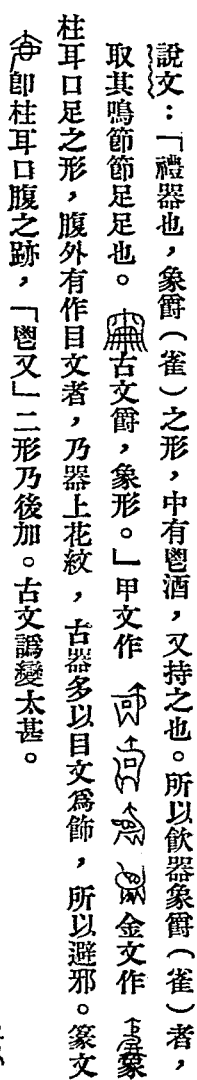 說文：「禮器也，象爵（雀）之形，中有鬯酒，又持之也。所以飲器象爵（雀）者，
取其鳴節節足足也。古文爵，象形。」甲文作 金文作 象
柱耳口足之形，腹外有作目文者，乃器上花紋，古器多以目文爲飾，所以避邪。篆文
卽柱耳口腹之跡，「鬯又」二形乃後加。古文譌變太甚。